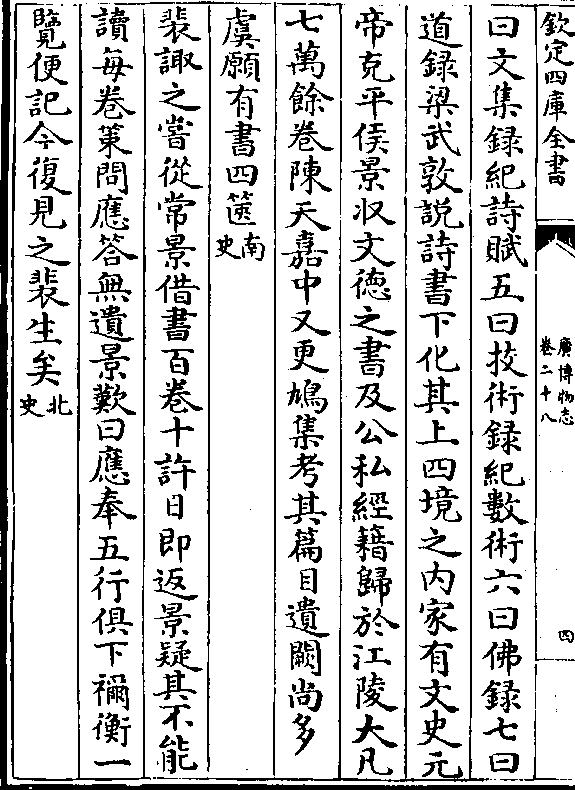 欽定四庫全書
廣博物志
卷二十八
四
曰文集録紀詩賦五曰技術録紀數術六曰佛録七曰
道録梁武敦説詩書下化其上四境之内家有文史元
帝克平侯景収文徳之書及公私經籍歸於江陵大凡
七萬餘卷陳天嘉中又更鳩集考其篇目遺闕尚多
虞願有書四篋南史
裴諏之嘗從常景借書百卷十許日即返景疑其不能
讀每卷策問應答無遺景歎曰應奉五行俱下禰衡一
覽便記今復見之裴生矣北史